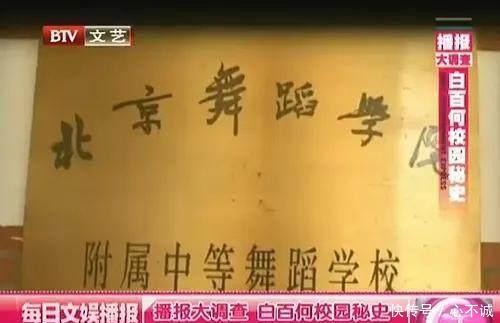 BTV 文艺
播报
大调查
白百何校园秘史
北京舞蹈学院
附属中等舞蹈学校
每日文娱播报
播报大调查 白百何校园秘史
快传号/心不诚